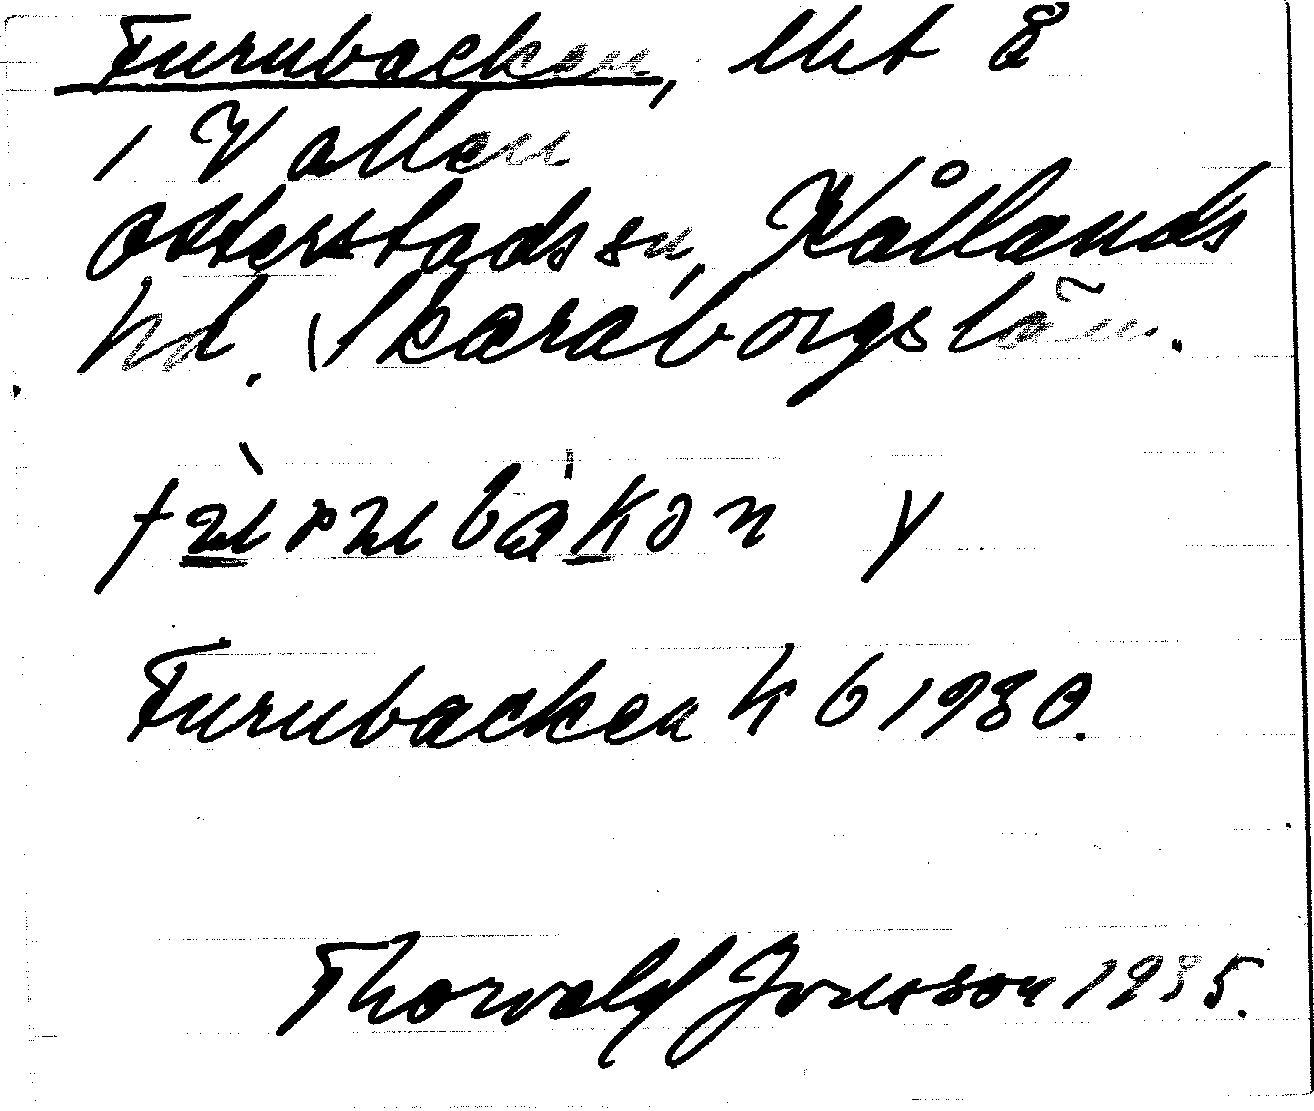 Furubacken, lht 8
i Vallen
Otterstads sn, Kållands
hd. Skaraborgs län.
fùrubákən y
Furubacken k b 1930.
Thorvald Jonsson 1935.